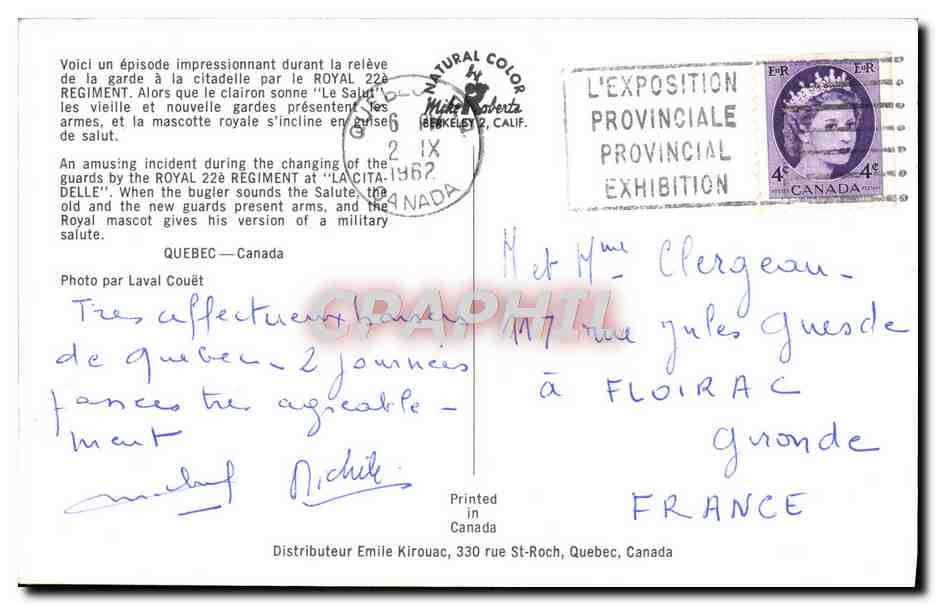 Voici un épisode impressionnant durant la relève
de la garde à la citadelle par le ROYAL 22è
REGIMENT. Alors que le clairon sonne "Le Salut",
les vieille et nouvelle gardes présentent les
armes, et la mascotte royale s'incline en guise
de salut.
An amusing incident during the changing of the
guards by the ROYAL 22è REGIMENT at "LA CITA-
DELLE". When the bugler sounds the Salute, the
old and the new guards present arms, and the
Royal mascot gives his version of a military
salute.
QUEBEC — Canada
Photo par Laval Couët
NATURAL COLOR
by
Mike Roberts
BERKELEY 2, CALIF.
QUEBEC
6
2 IX
1962
CANADA
L'EXPOSITION
PROVINCIALE
PROVINCIAL
EXHIBITION
EIIR EIIR
4¢ 4¢
CANADA
Tres affectueux baisers
de Quebec - 2 journées
passées tres agreable -
ment
Michèle
M et Mme Clergeau -
117 rue Jules Guesde
à FLOIRAC
Gironde
FRANCE
CPAPHIL
Printed
in
Canada
Distributeur Emile Kirouac, 330 rue St-Roch, Quebec, Canada